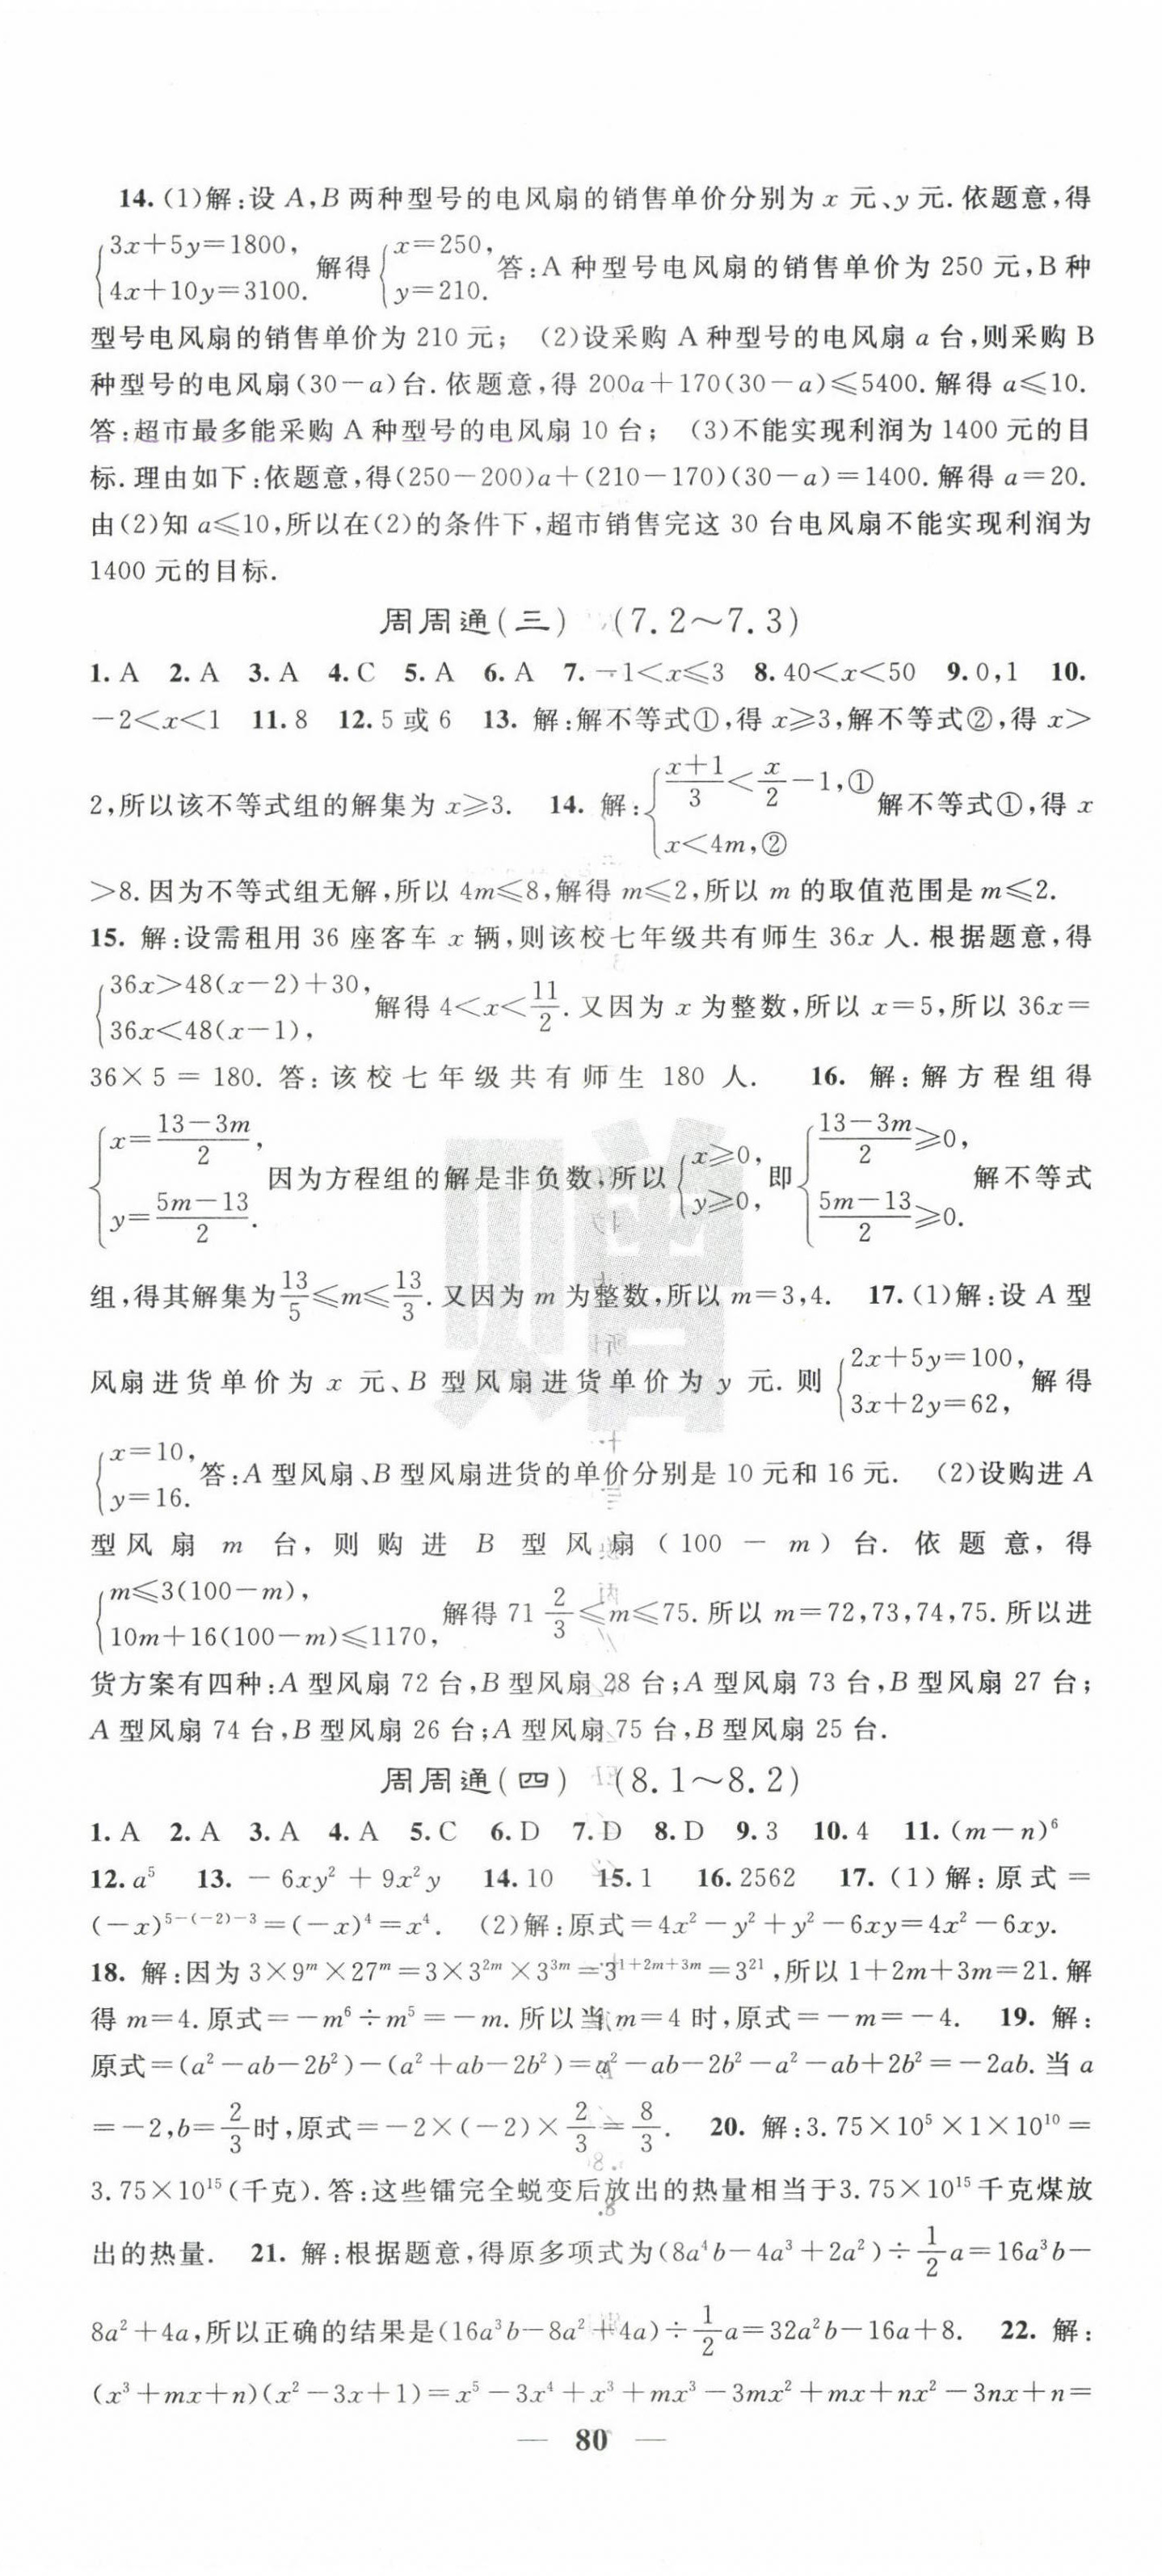 14. (1)解:设 A,B 两种型号的电风扇的销售单价分别为 x 元、y 元. 依题意,得
{3x+5y=1800, 4x+10y=3100. 解得{x=250, y=210. 答:A 种型号电风扇的销售单价为 250 元,B 种
型号电风扇的销售单价为 210 元; (2)设采购 A 种型号的电风扇 a 台,则采购 B
种型号的电风扇(30-a)台. 依题意,得 200a+170(30-a)≤5400. 解得 a≤10.
答:超市最多能采购 A 种型号的电风扇 10 台; (3)不能实现利润为 1400 元的目
标. 理由如下:依题意,得(250-200)a+(210-170)(30-a)=1400. 解得 a=20.
由(2)知 a≤10,所以在(2)的条件下,超市销售完这 30 台电风扇不能实现利润为
1400 元的目标.
周周通(三) (7.2~7.3)
1. A 2. A 3. A 4. C 5. A 6. A 7. -1<x≤3 8. 40<x<50 9. 0,1 10.
-2<x<1 11. 8 12. 5 或 6 13. 解:解不等式①,得 x≥3,解不等式②,得 x>
2,所以该不等式组的解集为 x≥3. 14. 解:{(x+1)/3<x/2-1,① x<4m,② 解不等式①,得 x
>8. 因为不等式组无解,所以 4m≤8,解得 m≤2,所以 m 的取值范围是 m≤2.
15. 解:设需租用 36 座客车 x 辆,则该校七年级共有师生 36x 人. 根据题意,得
{36x>48(x-2)+30, 36x<48(x-1), 解得 4<x<11/2. 又因为 x 为整数,所以 x=5,所以 36x=
36×5=180. 答:该校七年级共有师生 180 人. 16. 解:解方程组得
{x=(13-3m)/2, y=(5m-13)/2. 因为方程组的解是非负数,所以{x≥0, y≥0, 即{(13-3m)/2≥0, (5m-13)/2≥0. 解不等式
组,得其解集为13/5≤m≤13/3. 又因为 m 为整数,所以 m=3,4. 17. (1)解:设 A 型
风扇进货单价为 x 元、B 型风扇进货单价为 y 元. 则{2x+5y=100, 3x+2y=62, 解得
{x=10, y=16. 答:A 型风扇、B 型风扇进货的单价分别是 10 元和 16 元. (2)设购进 A
型风扇 m 台,则购进 B 型风扇(100-m)台. 依题意,得
{m≤3(100-m), 10m+16(100-m)≤1170, 解得 71 2/3≤m≤75. 所以 m=72,73,74,75. 所以进
货方案有四种:A 型风扇 72 台,B 型风扇 28 台;A 型风扇 73 台,B 型风扇 27 台;
A 型风扇 74 台,B 型风扇 26 台;A 型风扇 75 台,B 型风扇 25 台.
周周通(四) (8.1~8.2)
1. A 2. A 3. A 4. A 5. C 6. D 7. D 8. D 9. 3 10. 4 11. (m-n)⁶
12. a⁵ 13. -6xy²+9x²y 14. 10 15. 1 16. 2562 17. (1)解:原式=
(-x)⁵⁻⁽⁻²⁾⁻³=(-x)⁴=x⁴. (2)解:原式=4x²-y²+y²-6xy=4x²-6xy.
18. 解:因为 3×9ᵐ×27ᵐ=3×3²ᵐ×3³ᵐ=3¹⁺²ᵐ⁺³ᵐ=3²¹,所以 1+2m+3m=21. 解
得 m=4. 原式=-m⁶÷m⁵=-m. 所以当 m=4 时,原式=-m=-4. 19. 解:
原式=(a²-ab-2b²)-(a²+ab-2b²)=a²-ab-2b²-a²-ab+2b²=-2ab. 当 a
=-2,b=2/3时,原式=-2×(-2)×2/3=8/3. 20. 解:3.75×10⁵×1×10¹⁰=
3.75×10¹⁵(千克). 答:这些镭完全蜕变后放出的热量相当于3.75×10¹⁵千克煤放
出的热量. 21. 解:根据题意,得原多项式为(8a⁴b-4a³+2a²)÷1/2a=16a³b-
8a²+4a,所以正确的结果是(16a³b-8a²+4a)÷1/2a=32a²b-16a+8. 22. 解:
(x³+mx+n)(x²-3x+1)=x⁵-3x⁴+x³+mx³-3mx²+mx+nx²-3nx+n=
— 80 —
赠